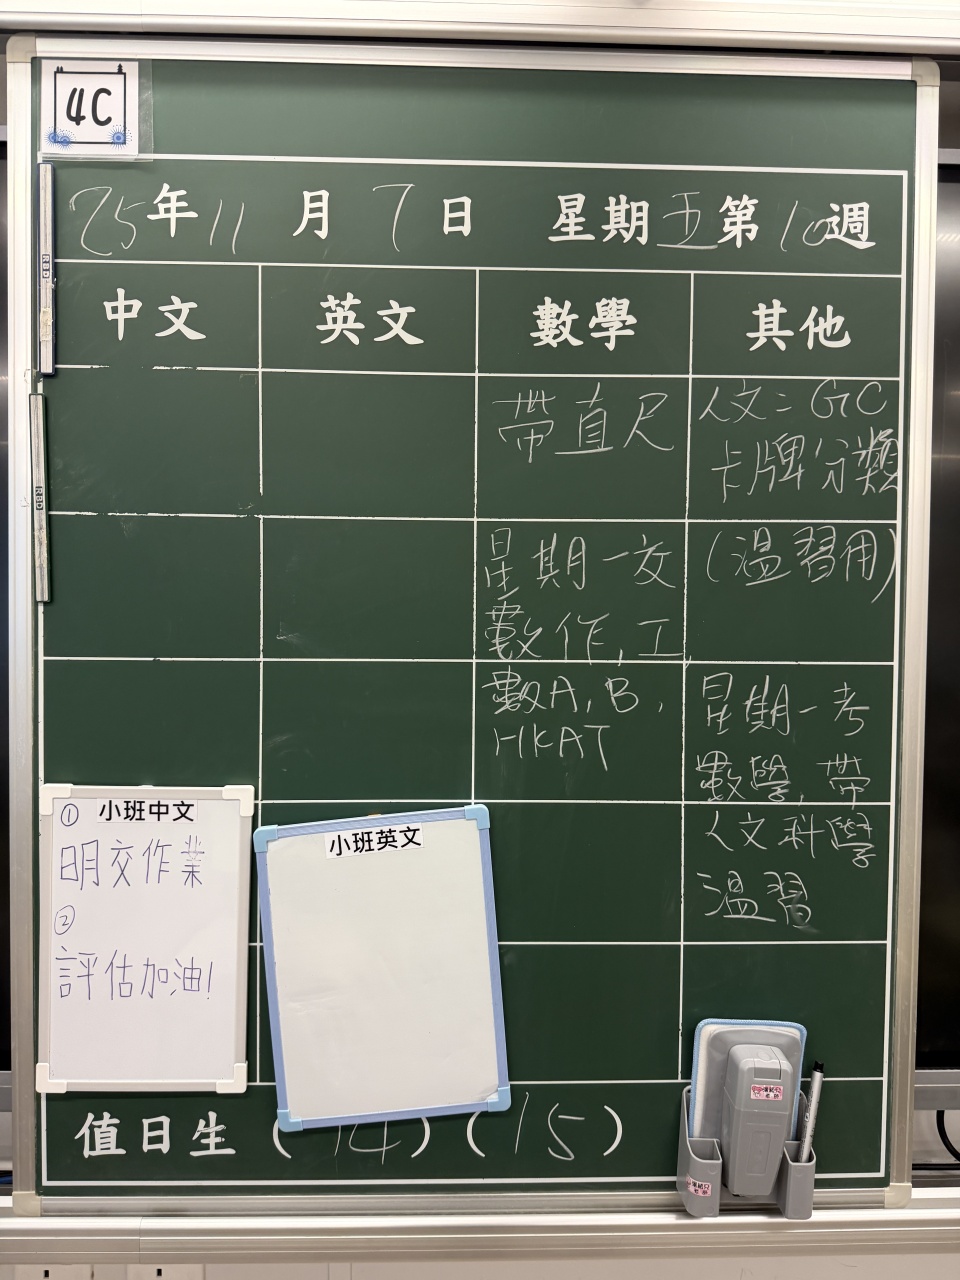 4C
25年11月7日 星期五第10週
中文 英文 數學 其他
帶直尺
星期一交
數作,工,
數A,B,
HKAT
人文:GC
卡牌分類
(溫習用)
星期一考
數學,帶
人文科學
溫習
小班中文
①
明交作業
②
評估加油!
小班英文
值日生(14)(15)
RBD
RBD